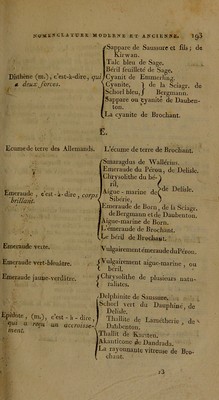 NOMENCLATURE MODERNE ET ANCIENNE. 193
Disthène (m.), c'est-à-dire, qui
a deux forces.
Sappare de Saussure et fils ; de
Kirwan.
Talc bleu de Sage.
Béril feuilleté de Sage.
Cyanit de Emmerling.
Cyanite, } de la Sciagr. de
Schorl bleu, } Bergmann.
Sappare ou cyanite de Dauben-
ton.
La cyanite de Brochant.
É.
Écume de terre des Allemands. L'écume de terre de Brochant.
Emeraude, c'est-à-dire, corps
brillant.
Smaragdus de Wallérius.
Emeraude du Pérou, de Delisle.
Chrysolithe du bé-
ril,
Aigue-marine de
Siberie,
} de Delisle.
Emeraude de Born, de la Sciagr.
de Bergmann et de Daubenton.
Aigue-marine de Born.
L'émeraude de Brochant.
Le béril de Brochant.
Emeraude verte. Vulgairement émeraude du Pérou.
Emeraude vert-bleuâtre. Vulgairement aigue-marine, ou
béril.
Emeraude jaune-verdâtre. Chrysolithe de plusieurs natu-
ralistes.
Epidote, (m.), c'est-à-dire,
qui a reçu un accroisse-
ment.
Delphinite de Saussure.
Schorl vert du Dauphiné, de
Delisle.
Thallite de Lamétherie, de
Daubenton.
Thallit de Karsten.
Akanticone de Dandrada.
La rayonnante vitreuse de Bro-
chant.
13